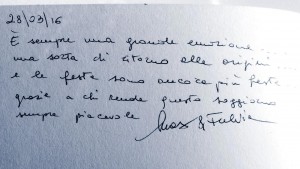 28/03/16
È sempre una grande emozione ...
una sorta di ritorno alle origini ...
e le feste sono ancora più feste
grazie a chi rende questo soggiorno
sempre piacevole & Fulvia